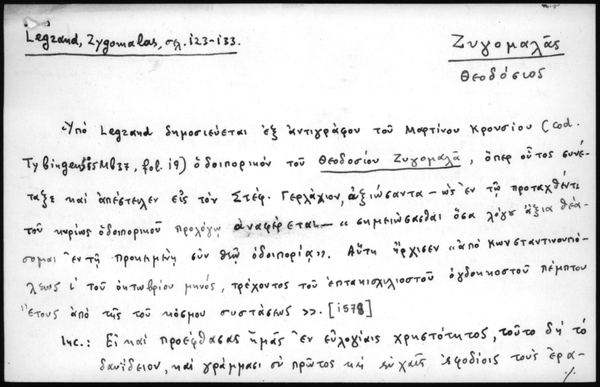 Legrand, Zygomalas, σελ. 123-133.
Ζυγομαλᾶς
Θεοδόσιος
Ὑπὸ Legrand δημοσιεύεται ἐξ ἀντιγράφου τοῦ Μαρτίνου Κρουσίου (cod.
Tybingensis Mb37, fol. 19) ὁδοιπορικόν τοῦ Θεοδοσίου Ζυγομαλᾶ, ὅπερ οὗτος συνέ-
ταξε καὶ ἀπέστειλεν εἰς τὸν Στέφ. Γερλάχιον, ἀξιώσαντα - ὡς ἐν τῷ προταχθέντι
τοῦ κυρίως ὁδοιπορικοῦ προλόγῳ ἀναφέρεται - "σημειώσασθαι ὅσα λόγου ἄξια θεά-
σομαι ἐν τῇ προκειμένῃ σὺν θῷ ὁδοιπορίᾳ". Αὕτη ἤρχισεν "ἀπὸ Κωνσταντινουπό-
λεως ι΄ τοῦ ὀκτωβρίου μηνός, τρέχοντος τοῦ ἑπτακισχιλιοστοῦ ὀγδοηκοστοῦ πέμπτου
ἔτους ἀπὸ τῆς τοῦ κόσμου συστάσεως ». [1578]
Inc.: Εἰ καὶ προέφθασας ἡμᾶς ἐν εὐλογίαις χρηστότητος, τοῦτο δὴ τὸ
δαυΐδειον, καὶ γράμμασι σὺ πρῶτος καὶ εὐχαῖς ἐφοδίοις τοὺς ἐρα-
./.